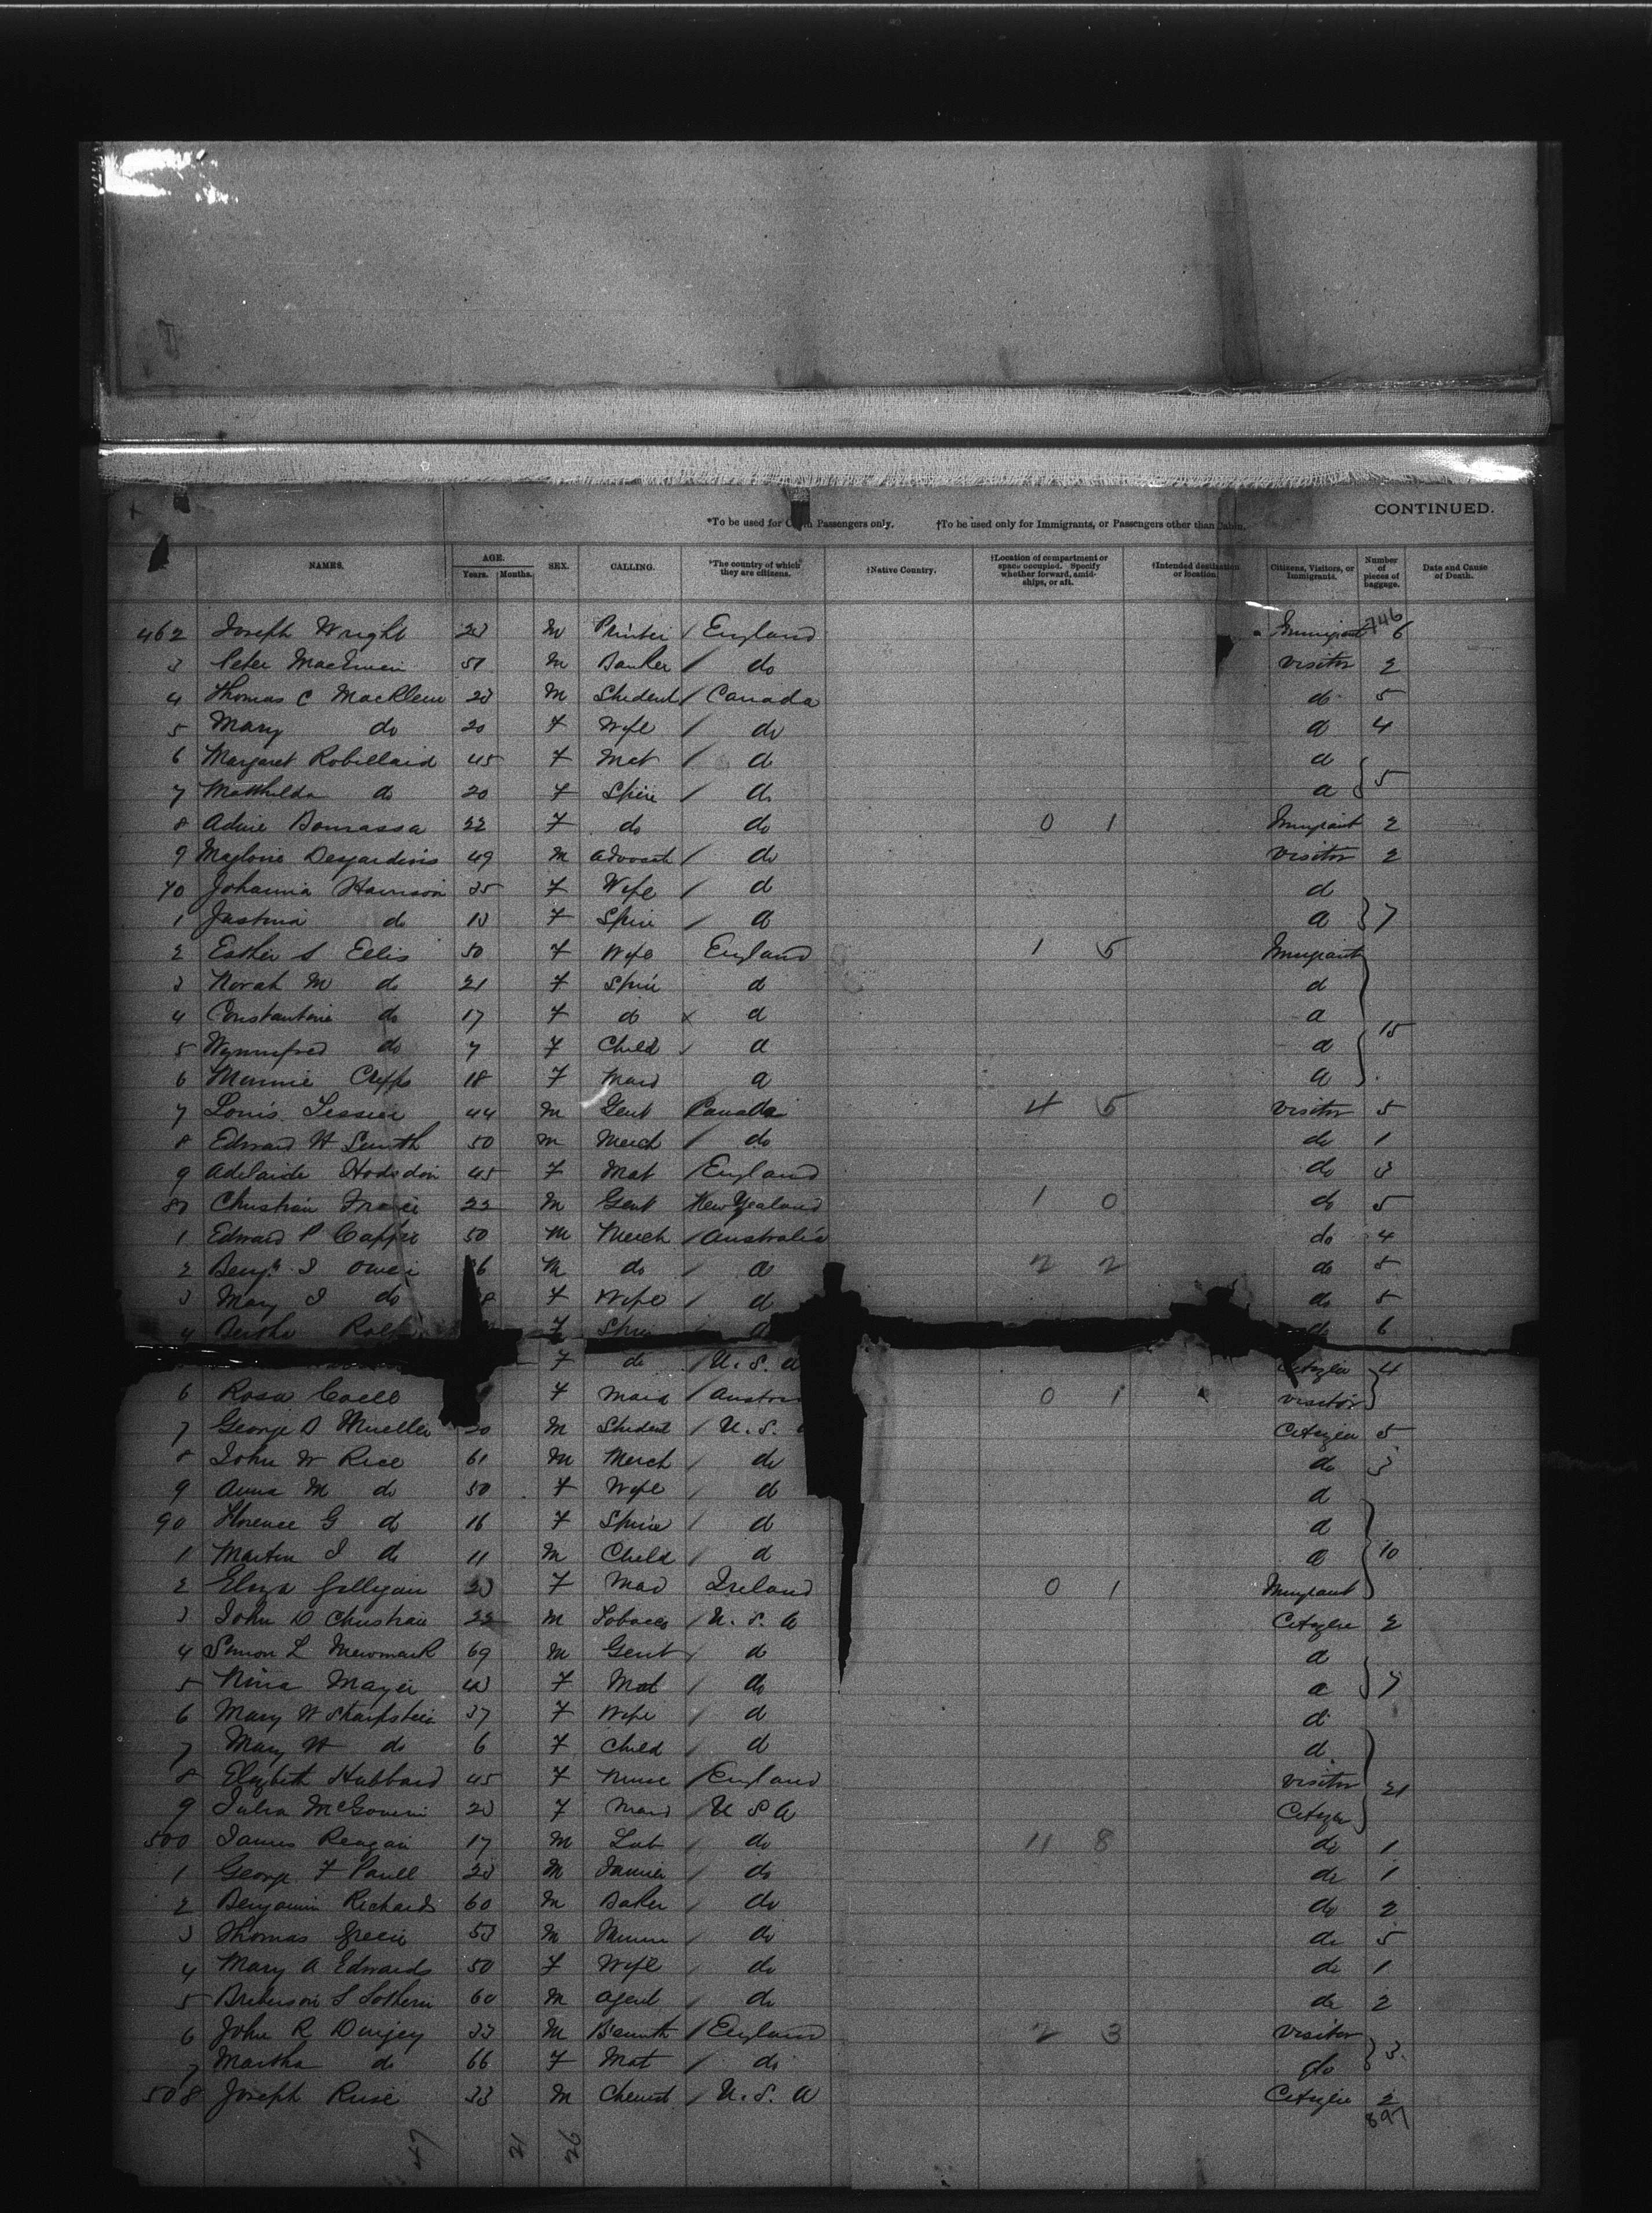 CONTINUED.
*To be used for Passengers only. †To be used only for Immigrants, or Passengers other than Cabin.
NAMES. AGE. Years. Months. SEX. CALLING. *The country of which they are citizens. †Native Country. †Location of compartment or space occupied. Specify whether forward, amidships, or aft. †Intended destination or location. Citizens, Visitors, or Immigrants. Number of pieces of baggage. Date and Cause of Death.
746
462 Joseph Wright M Printer / England Immigrant 6
3 Peter 51 M Banker / do visitor 2
4 Thomas C Macklem 23 M Student / Canada do 5
5 Mary do 20 F Wife / do d 4
6 Margaret Robillard 45 F Mat / d d
7 Mathilda do 20 F Spin / do d } 5
8 22 F do do 0 1 Immigrant 2
9 Desjardins 49 M advocat / do visitor 2
70 Johanna Harrison 35 F Wife / d d
1 Justina do 13 F Spin / d d } 7
2 Esther S Ellis 50 F Wife England 1 5 Immigrant
3 Norah M do 21 F Spin d d
4 Constantine do 17 F do x d d
5 Wynnifred do 7 F Child / d d } 15
6 Minnie Cripps 18 F Maid d d
7 Louis Tessier 44 M Gent Canada 4 5 visitor 5
8 Edward H Smith 50 M Merch / do do 1
9 Adelaide Hodsdon 45 F Mat / England do 3
80 Christian 22 M Gent New Zealand 1 0 do 5
1 Edward P Capper 50 M Merch / Australia do 4
2 Benj. I Owen M do / d 2 2 do 5
3 Mary I do F Wife / d do 5
4 Bertha F Spin do 6
F do / U. S. A Citizen } 4
6 Rosa F Maid / 0 1 visitor
7 George D Mueller 20 M Student / U. S. Citizen 5
8 John W Rice 61 M Merch / do do 3
9 Anna M do 50 F Wife / d d
90 Florence G do 16 F Spin / d d
1 Martin I do 11 M Child / d d } 10
2 Eliza Gilligan 23 F Maid Ireland 0 1 Immigrant
3 John D Christian 22 M Tobacco / U. S. A Citizen 2
4 Simon L Newmark 69 M Gent / d d
5 Nina Mayer 43 F Mat / do d } 7
6 Mary W Sharpstein 37 F Wife / d d
7 Mary W do 6 F Child / d d
8 Elizabeth Hubbard 45 F Nurse / England visitor } 21
9 Julia McGovern 23 F Maid / U S A Citizen
500 James Reagan 17 M Lab / do 11 8 do 1
1 George F Paull 23 M / do do 1
2 Benjamin Richards 60 M Baker / do do 2
3 Thomas 53 M / do do 5
4 Mary A Edwards 50 F Wife / do do 1
5 60 M Agent / do do 2
6 John R 33 M B'smith / England 2 3 visitor
7 Martha do 66 F Mat / do do } 3
508 Joseph Ruse 33 M Chemist / U. S. A Citizen 2
897
47 21 26